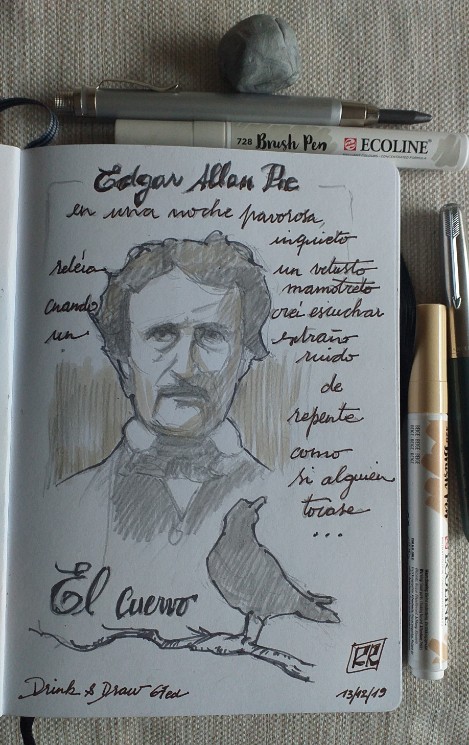 728 Brush Pen ECOLINE
Edgar Allan Poe
en una noche pavorosa,
inquieto
releía un vetusto
mamotreto
cuando creí escuchar
un extraño
ruido
de
repente
como
si alguien
tocase
...
El cuervo
RR
Drink & Draw Gted 13/12/19
Brush Pen
ECOLINE